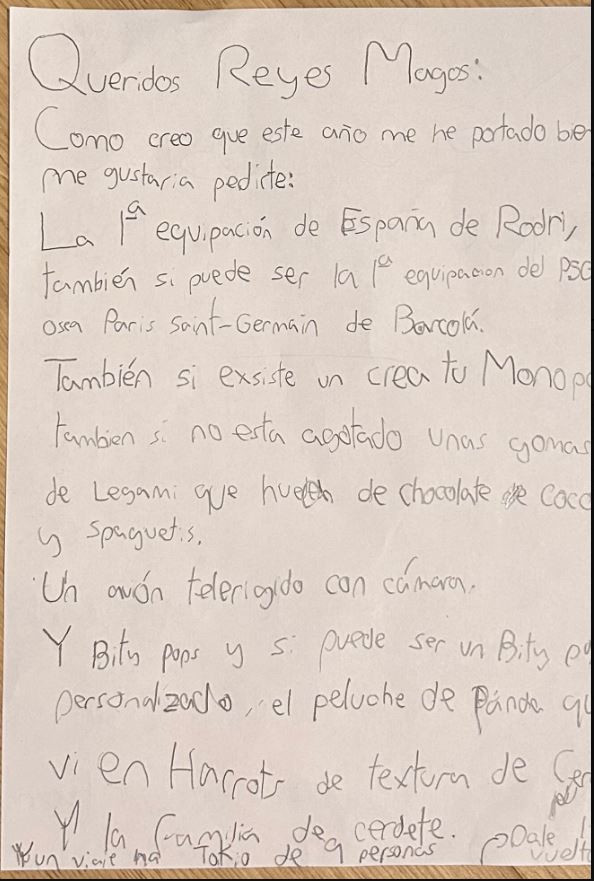 Queridos Reyes Magos:
Como creo que este año me he portado bie
me gustaria pedirte:
La 1ª equipación de España de Rodri,
también si puede ser la 1ª equipacion del PSG
osea Paris Saint-Germain de Barcolá.
También si exsiste un crea tu Monopo
tambien si no esta agotado unas gomas
de Legami que huelen de chocolate de coco
y spaguetis.
Un avón telerigido con cámara.
Y Bity pops y si puede ser un Bity po
personalizado, el peluche de Panda qu
vi en Harrots de textura de Cer
Y la familia de cerdete.
Y un viaje a Tokio de 9 personas
→Dale l
vuelta